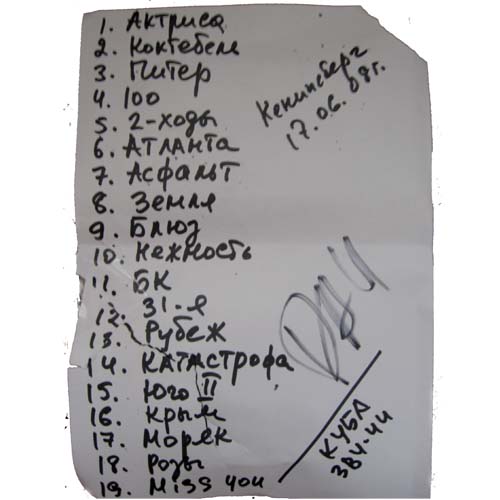 1. Актриса
2. Коктебель
3. Питер
4. 100
5. 2-ходы
6. Атланта
7. Асфальт
8. Земля
9. Блюз
10. Нежность
11. БК
12. 31-я
13. Рубеж
14. Катастрофа
15. Юго II
16. Крым
17. Моряк
18. Розы
19. Miss you
Кенинсберг
17.06.08г.
КУБА